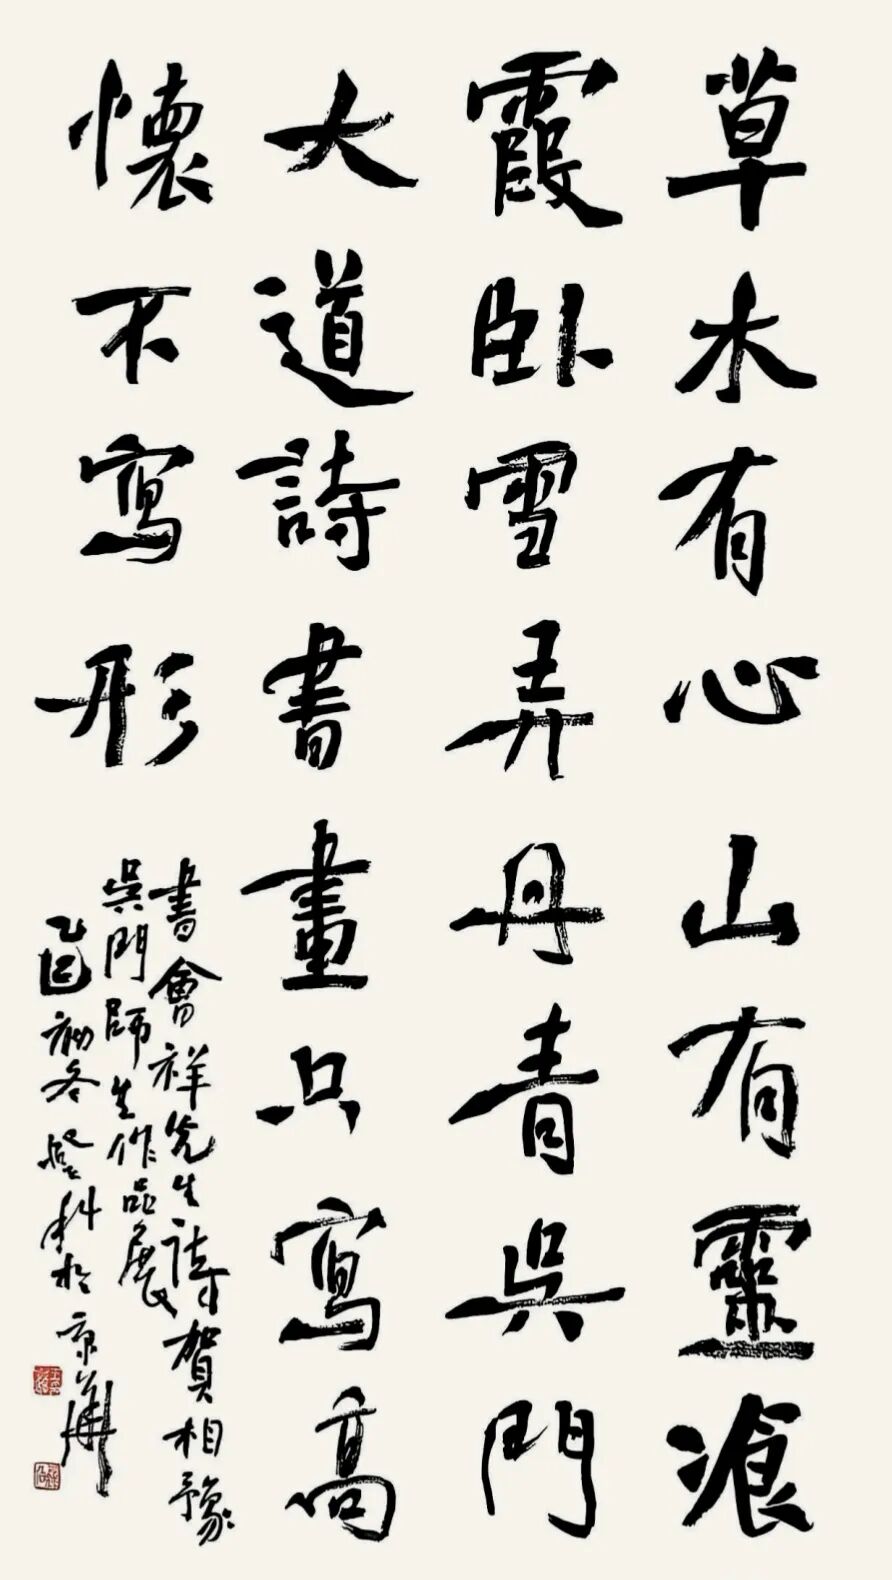 草木有心山有靈飡
霞卧雪弄丹青吳門
大道詩書畫只寫高
懷不寫形
書會祥先生詩賀相豫
吳門師生作品展
乙巳初冬登科於京華